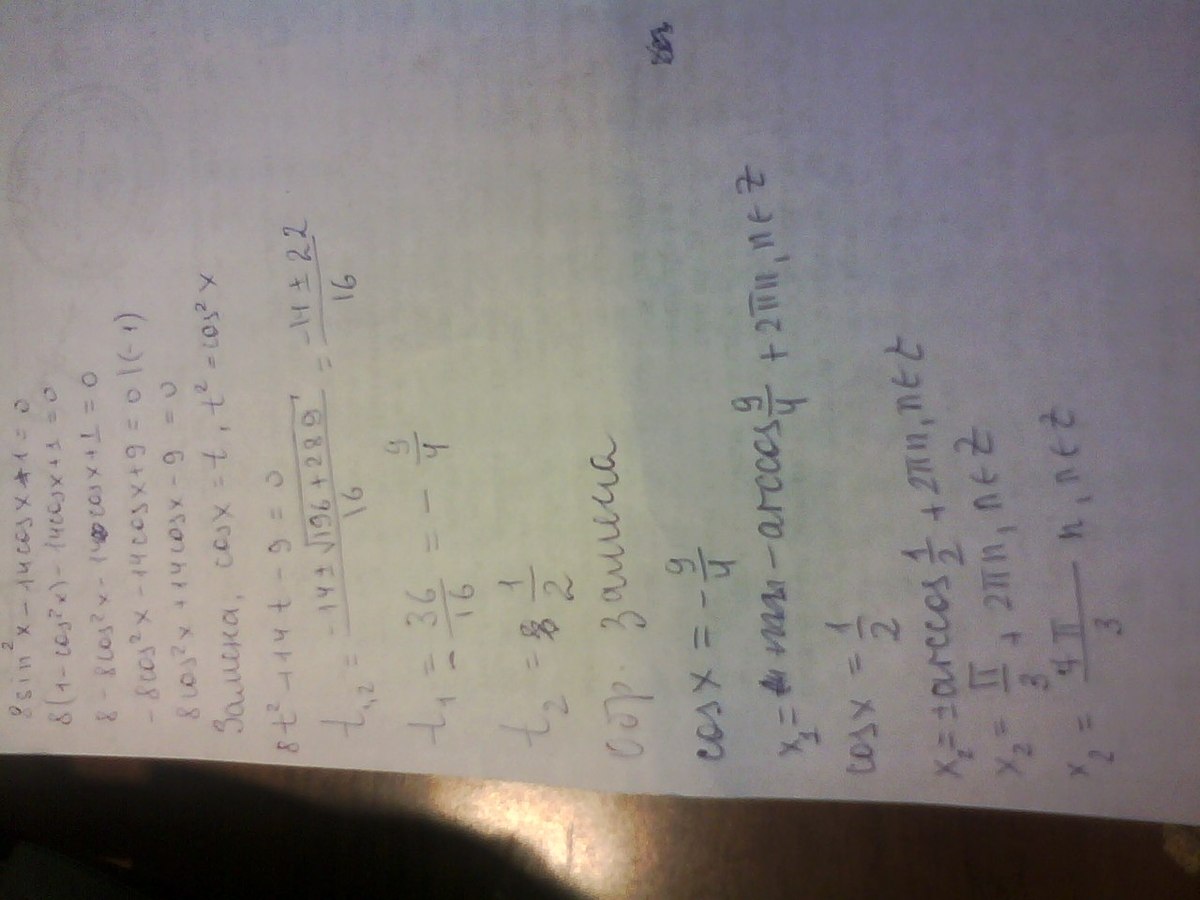 8sin²x - 14cosx + 1 = 0
8(1-cos²x) - 14cosx + 1 = 0
8 - 8cos²x - 14cosx + 1 = 0
-8cos²x - 14cosx + 9 = 0 |(-1)
8cos²x + 14cosx - 9 = 0
Замена, cosx = t, t² = cos²x
8t² + 14t - 9 = 0
t₁,₂ = (-14 ± √(196 + 289))/16 = (-14 ± 22)/16
t₁ = -36/16 = -9/4
t₂ = 1/2
Обр. Замена
cosx = -9/4
x₁ = - arccos 9/4 + 2πn, n ∈ Z
cosx = 1/2
x₂ = ± arccos 1/2 + 2πn, n ∈ Z
x₂ = π/3 + 2πn, n ∈ Z
x₂ = 4π/3 - n, n ∈ Z